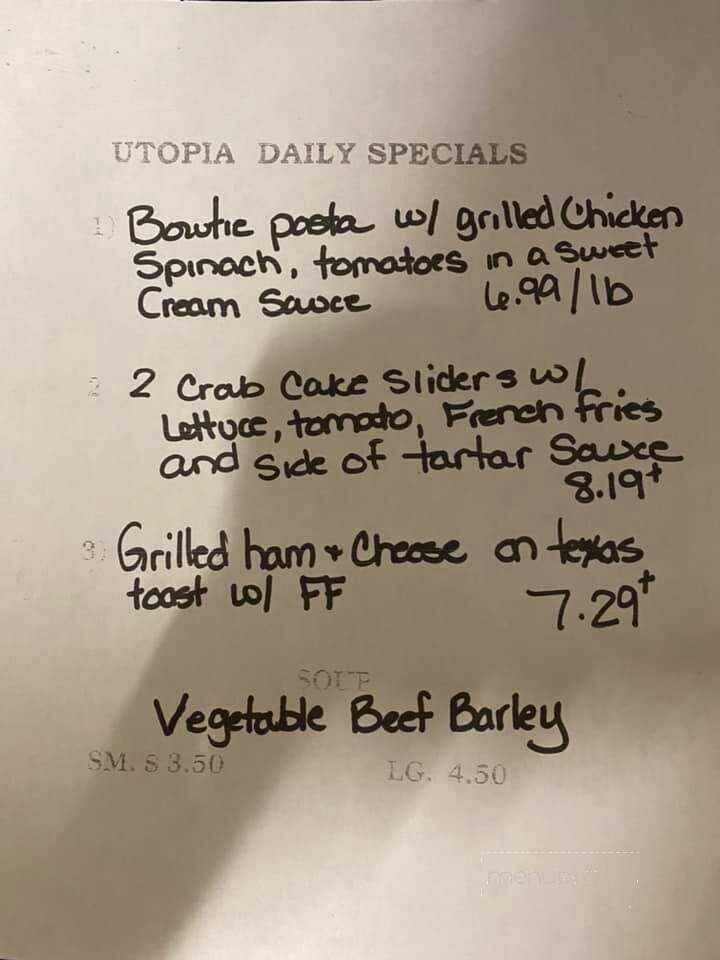 UTOPIA DAILY SPECIALS
1) Bowtie pasta w/ grilled Chicken
Spinach, tomatoes in a Sweet
Cream Sauce 6.99/lb
2 2 Crab Cake Sliders w/
Lettuce, tomato, French fries
and side of tartar Sauce
8.19+
3) Grilled ham + Cheese on texas
toast w/ FF 7.29+
SOUP
Vegetable Beef Barley
SM. $ 3.50 LG. 4.50